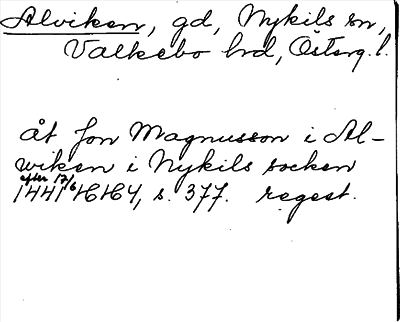 Alviken, gd, Nykils sn,
Valkebo hd, Österg. l.
åt Jon Magnusson i Al-
wiken i Nykils socken
efter 17/6
1441 HH 4, s. 377. regest.